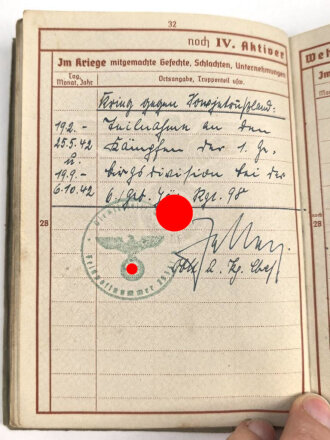 32
noch IV. Aktiver
Im Kriege mitgemachte Gefechte, Schlachten, Unternehmungen
Tag, Monat, Jahr
Ortsangabe, Truppenteil usw.
Krieg gegen Sowjetrußland:
19.2.- Teilnahme an den
25.5.42 Kämpfen der 1. Ge-
u.
19.9.- birgsdivision bei der
6.10.42 6./Geb. Jäg. Rgt. 98
28
Feldpostnummer
Oblt. u. Kp. Chef
Weh
28